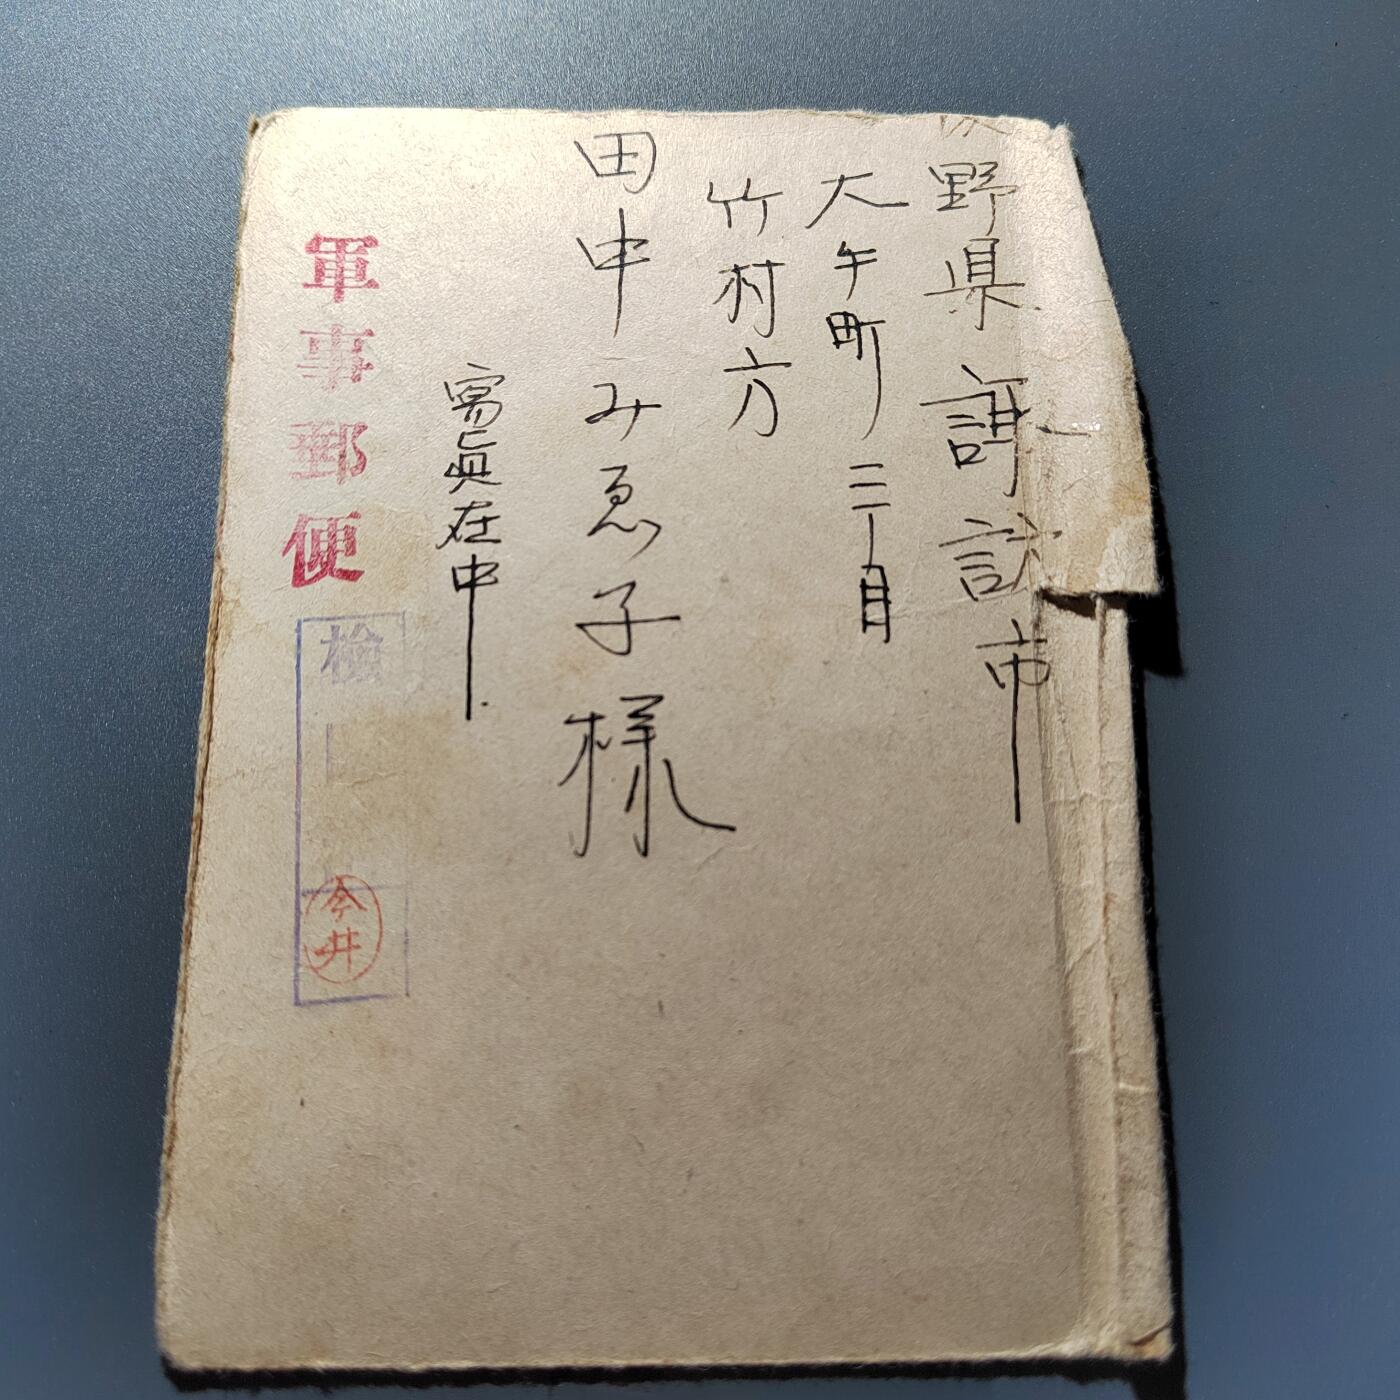 野県諏訪市
大手町二丁目
竹村方
田中みゑ子様
寫眞在中
軍事郵便
検
今井